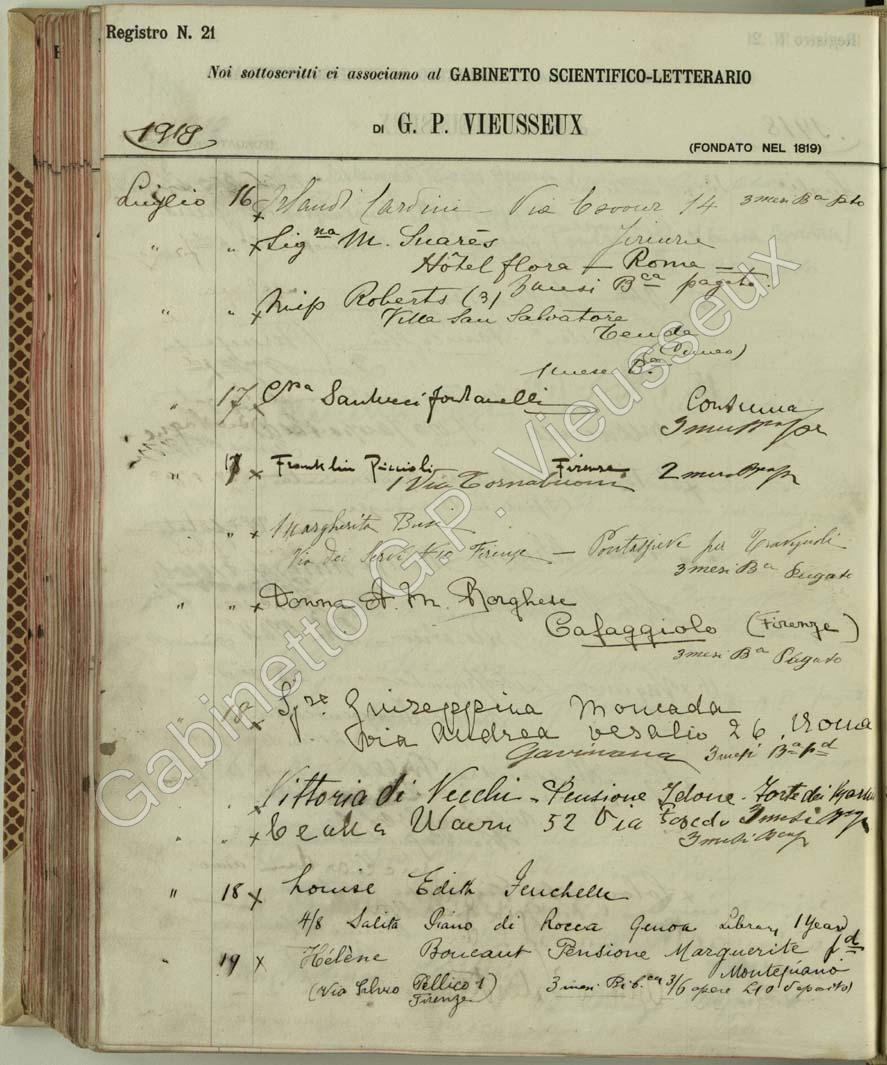 Registro N. 21
Noi sottoscritti ci associamo al GABINETTO SCIENTIFICO-LETTERARIO
DI G. P. VIEUSSEUX
1918
(FONDATO NEL 1819)
Luglio 16 x Cardini - Via Cavour 14 3 mesi Ba
" " x Signa M. Suarès Firenze
Hôtel flora - Roma -
" " x Miss Roberts (3) 3 mesi Bca pagato.
Villa San Salvatore
Tenda
(Cuneo)
1 mese Ba
" 17 x Santucci fontanelli Consuma
3 mesi
" x Franklin Piccioli Firenze 2 mesi
1 Via Tornabuoni
" x Margherita Busi
Via dei Servi Firenze - Pontassieve per
3 mesi Ba Pagato
" " x Donna A. M. Borghese
Cafaggiolo (Firenze)
3 mesi Ba Pagato
" x Giuseppina Moncada
via Andrea vesalio 26, Roma
Gavinana 3 mesi Ba pd
" x Vittoria di Vecchi - Pensione Idone - Forte dei
" " x 52 Via 3 mesi
3 mesi
" 18 x Louise Edith
4/8 Salita Piano di Rocca Genoa Library 1 year
" 19 x Hélène Boucaut Pensione Marguerite pd
Montepiano
(Via Silvio Pellico 1) 3 mesi 3/6 opere L 10 deposito)
Firenze
Gabinetto G.P. Vieusseux